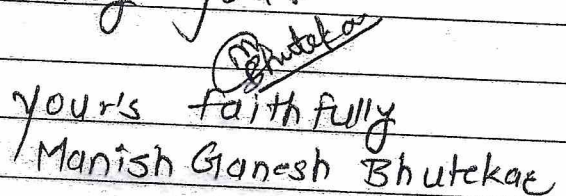 Bhutekar
your's faithfully
Manish Ganesh Bhutekar